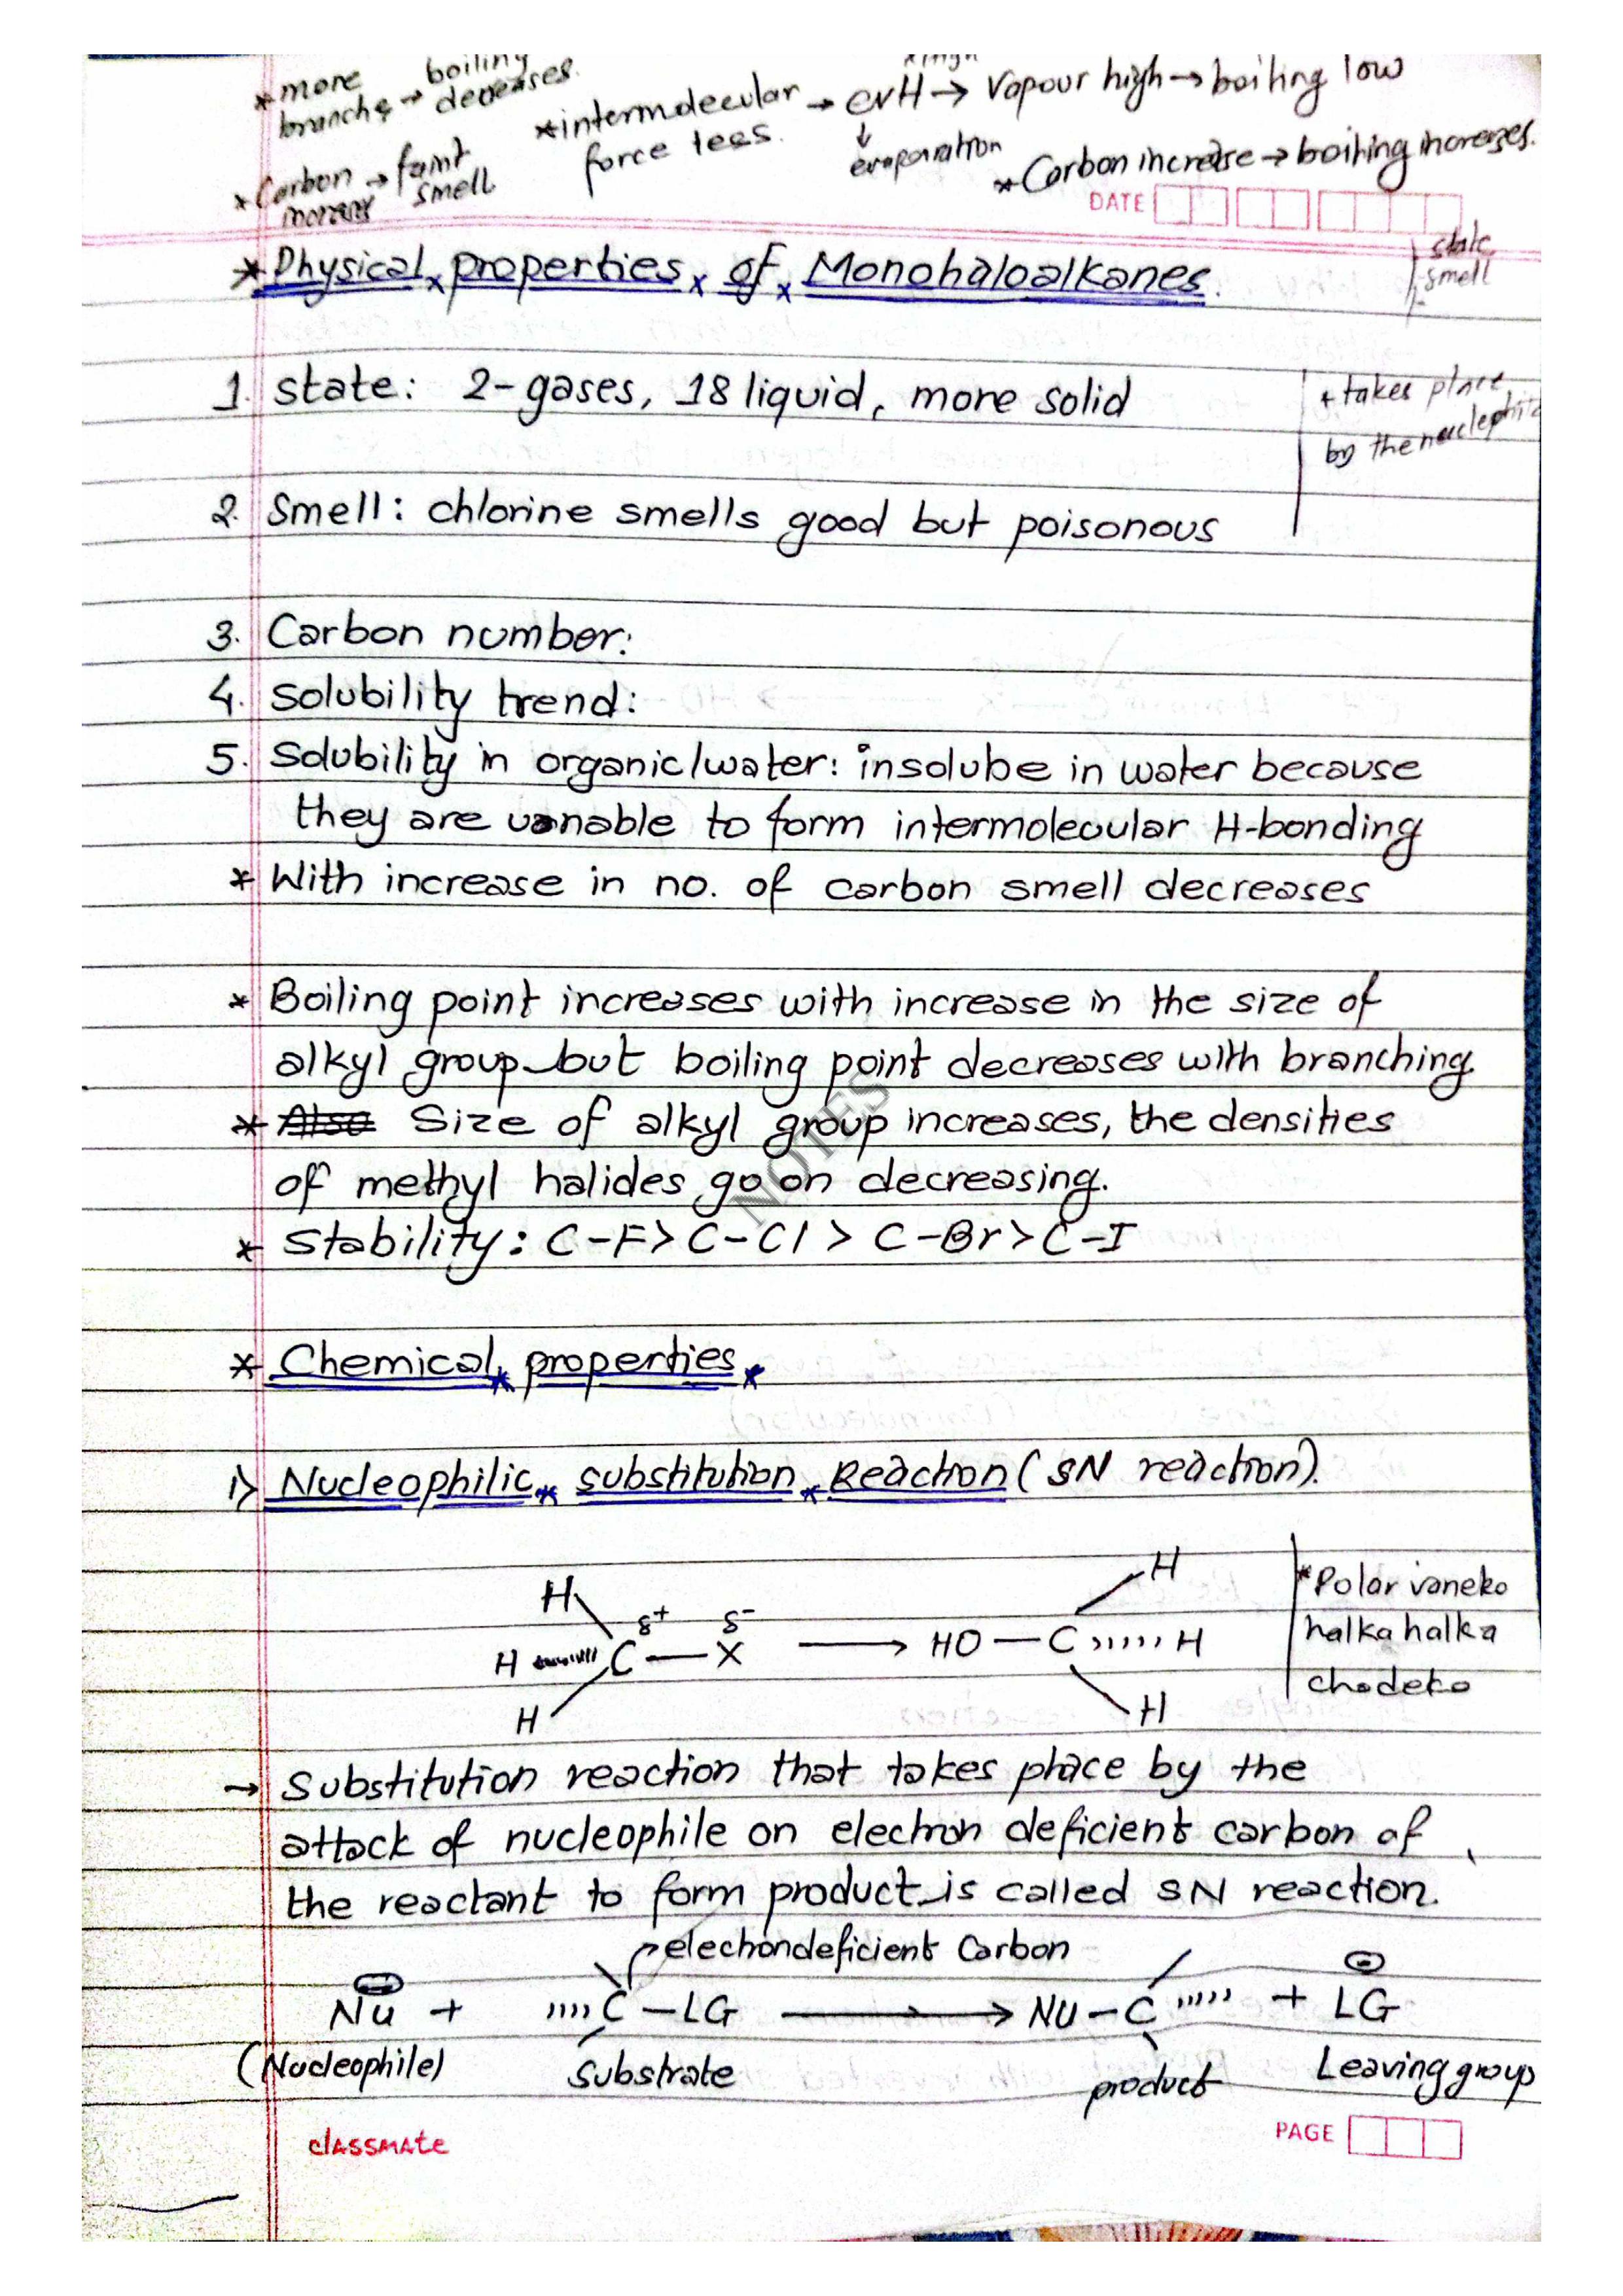 *more branche → boiling decreases.
*intermolecular force less. → evH → Vapour high → boiling low
↓
evaporation
*Carbon → faint smell
*Carbon increase → boiling increases.
DATE
state
smell
*Physical properties of Monohaloalkanes.
1. state: 2-gases, 18 liquid, more solid
* takes place
by the
2. Smell: chlorine smells good but poisonous
3. Carbon number:
4. Solubility trend:
5. Solubility in organic/water: insolube in water because
they are unable to form intermolecular H-bonding
* With increase in no. of carbon smell decreases
* Boiling point increases with increase in the size of
alkyl group but boiling point decreases with branching
* Also Size of alkyl group increases, the densities
of methyl halides go on decreasing.
NOTES
* Stability: C-F > C-Cl > C-Br > C-I
* Chemical properties
i> Nucleophilic substitution Reaction (SN reaction).
H H
H C δ+ — X δ- → HO — C H
H H
*Polar vaneko
halka halka
chodeko
→ Substitution reaction that takes place by the
attack of nucleophile on electron deficient carbon of
the reactant to form product is called SN reaction.
electrondeficient Carbon
Nu + C – LG → NU – C + LG
(Nucleophile) Substrate product Leaving group
classmate
PAGE